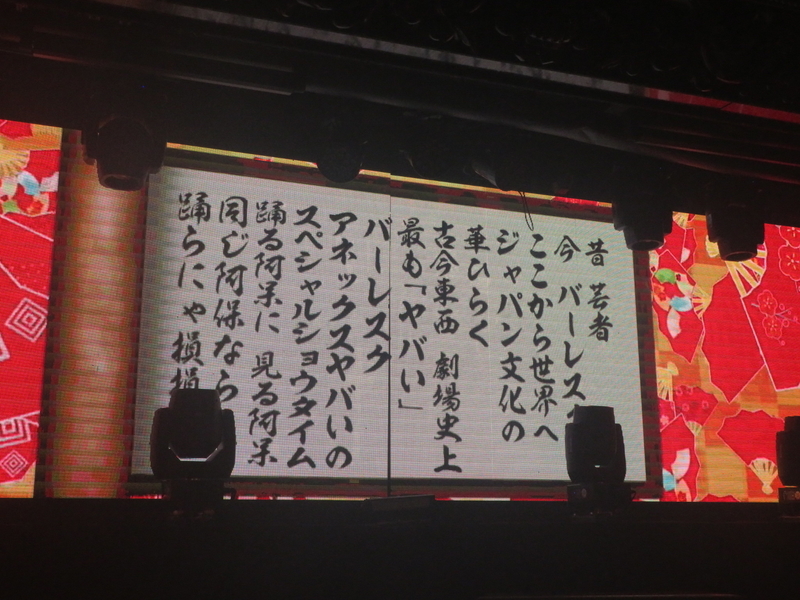 昔 芸者
今 バーレスク
ここから世界へ
ジャパン文化の
華ひらく
古今東西 劇場史上
最も「ヤバい」
バーレスク
アネックスヤバいの
スペシャルショウタイム
踊る阿呆に 見る阿呆
同じ阿保なら
踊らにゃ損損